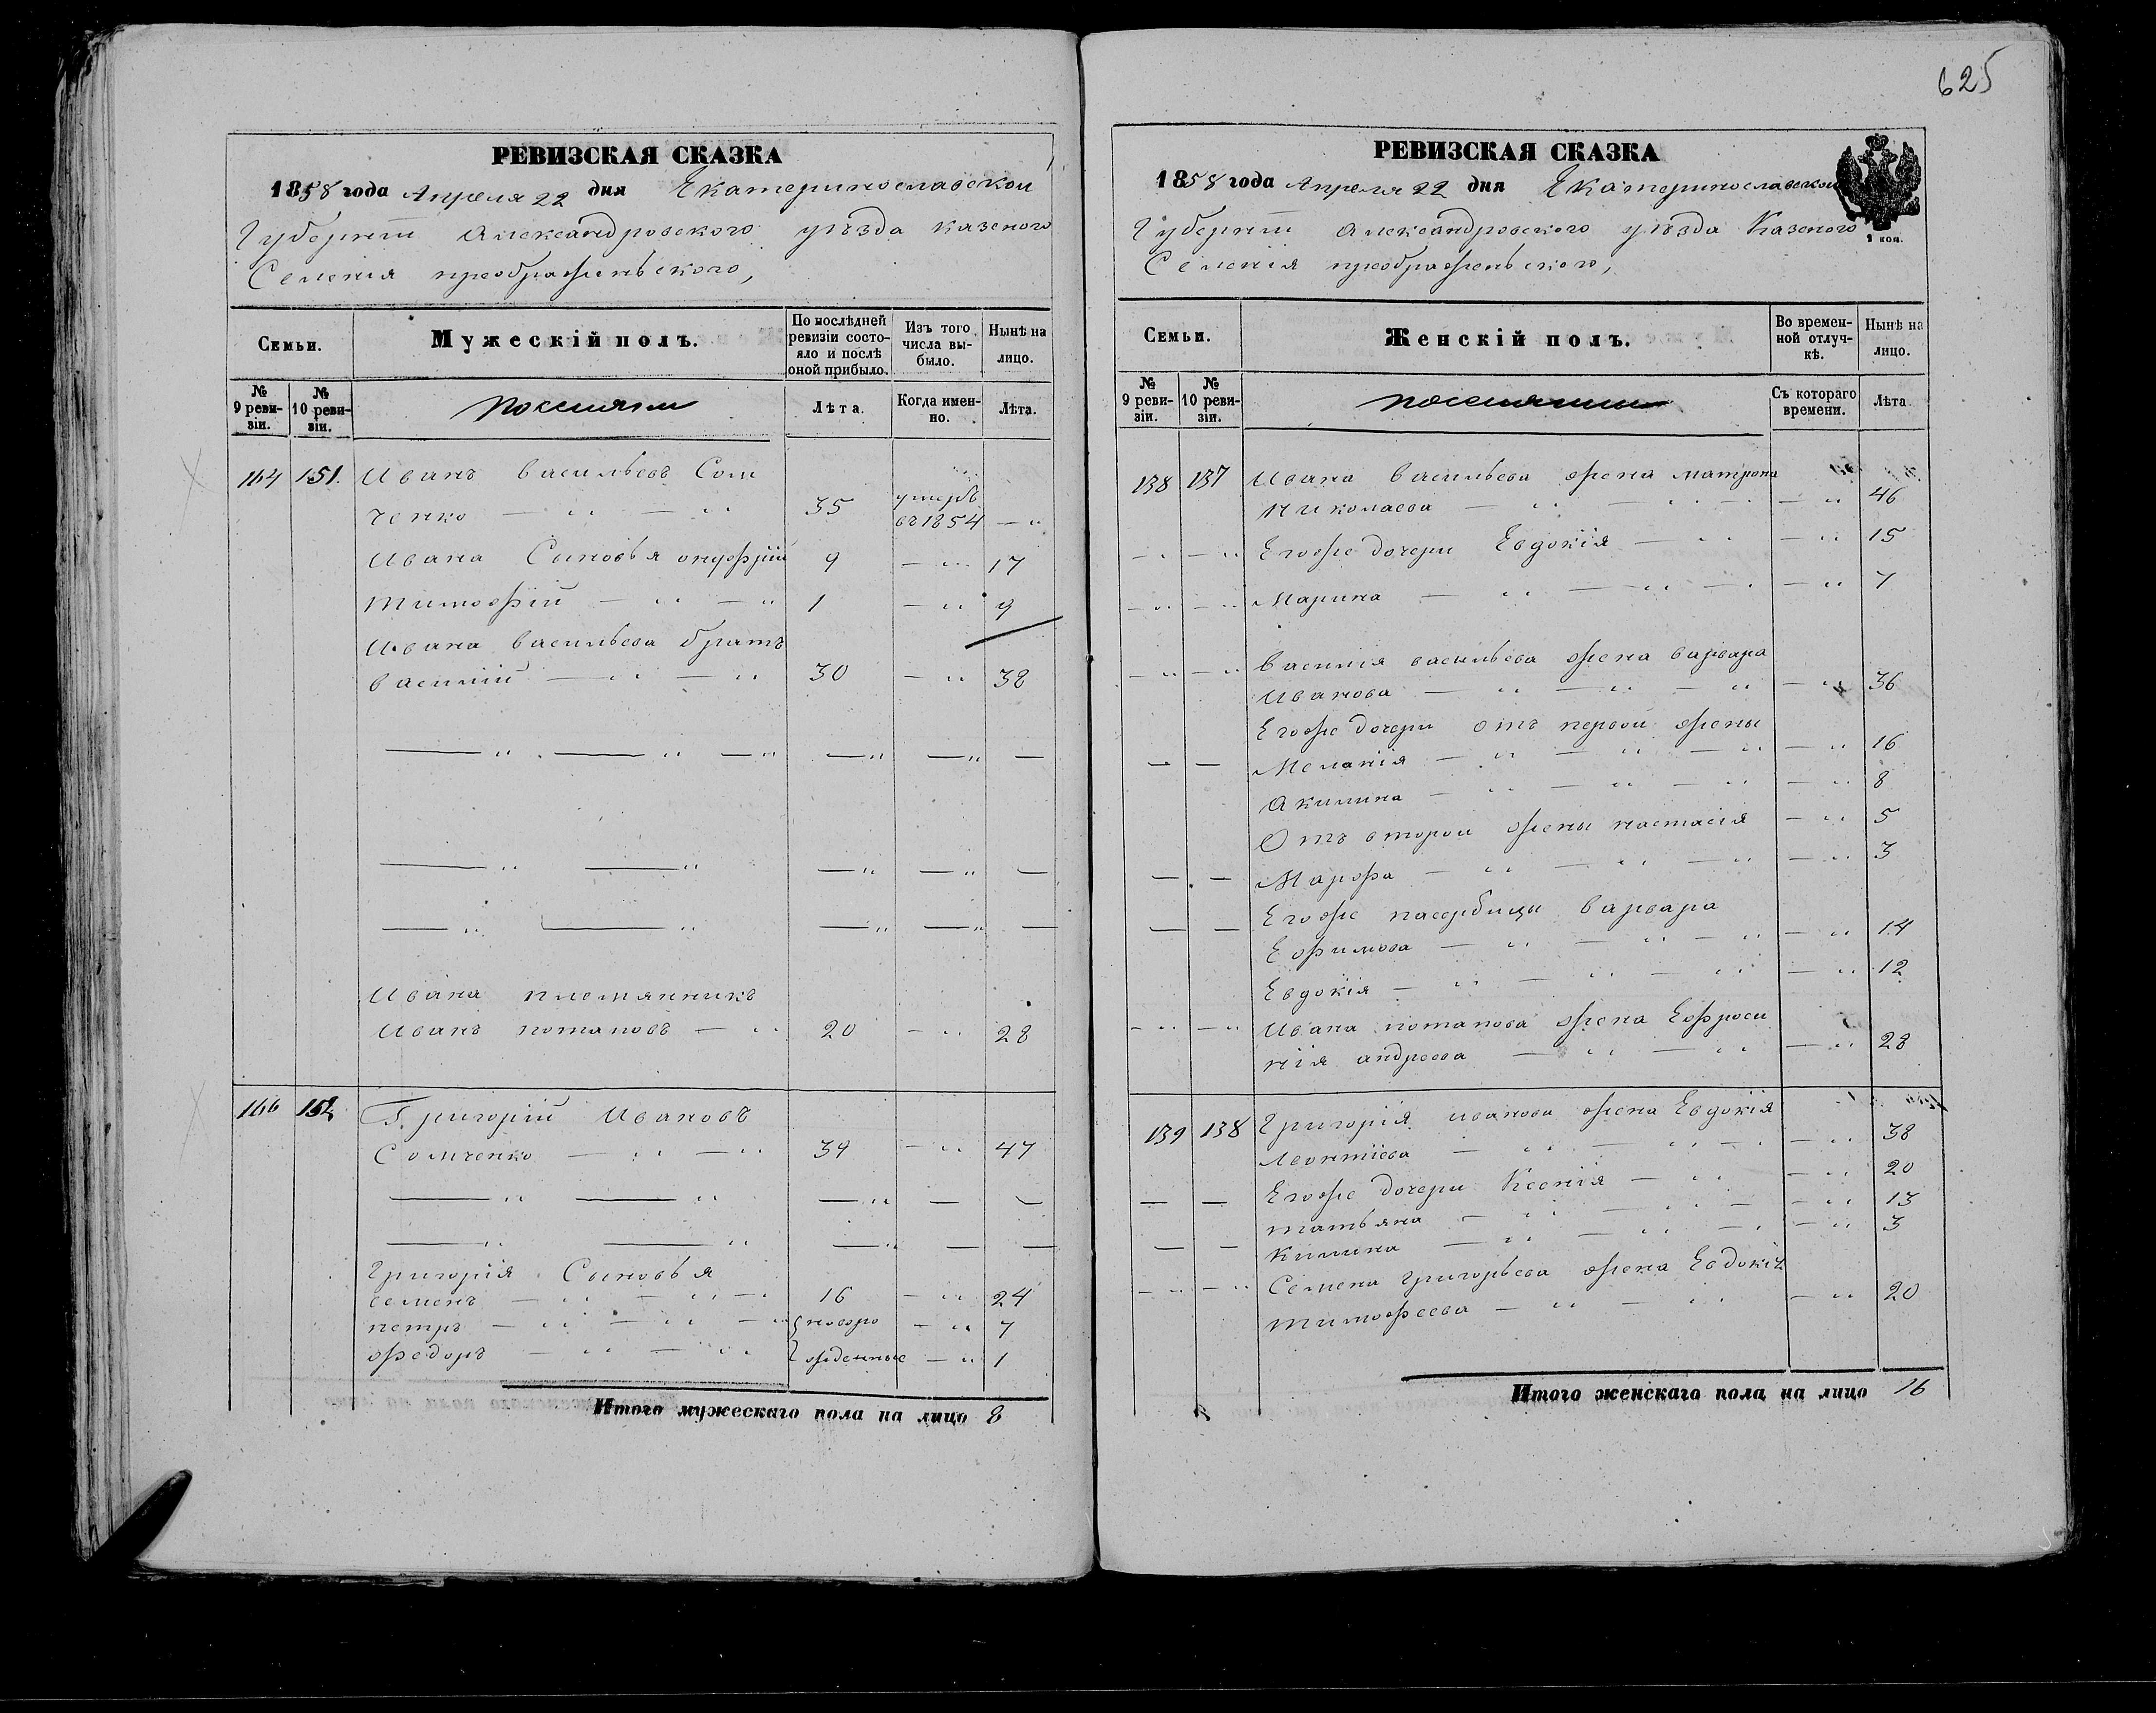 625
РЕВИЗСКАЯ СКАЗКА
1858 года Апреля 22 дня Екатеринославской
Губернiи Александровского уѣзда казеного
Селенiя преображеньского,
Семьи.
Мужескiй полъ.
По послѣдней ревизiи состояло и послѣ оной прибыло.
Изъ того числа выбыло.
Нынѣ на лицо.
№ 9 ревизiи.
№ 10 ревизiи.
Лѣта.
Когда именно.
Лѣта.
164 151. Иванъ васильевъ Сом
ченко — " — " 35 умеръ въ 1854 — "
Ивана Сыновья онуфрiй 9 — " 17
тимофiй — " — " 1 — " 9
Ивана васильева братъ
василiй — " — " 30 — " 38
Ивана племянникъ
Иванъ потаповъ — " 20 — " 28
166 152 Григорiй Ивановъ
Сомченко — " — " 39 — " 47
Григорiя Сыновья
семенъ — " — " — " 16 — " 24
петръ — " — " — " новоро — " 7
федоръ — " — " жденные — " 1
Итого мужескаго пола на лицо 8
РЕВИЗСКАЯ СКАЗКА
1858 года Апреля 22 дня Екатеринославской
Губернiи Александровского уѣзда Казеного
Селенiя преображеньского,
1 коп.
Семьи.
Женскiй полъ.
Во временной отлучкѣ.
Нынѣ на лицо.
№ 9 ревизiи.
№ 10 ревизiи.
Съ котораго времени.
Лѣта
138 137 Ивана васильева жена матрона
николаева — " — " — " 46
Егоже дочери Евдокiя — " — " 15
Марина — " — " — " 7
василiя васильева жена варвара
Иванова — " — " — " — " 36
Егоже дочери отъ первой жены
Меланiя — " — " — " — " 16
Акилина — " — " — " — " 8
Отъ второй жены настасiя — " 5
Марфа — " — " — " — " 3
Егоже пасербицы варвара
Ефимова — " — " — " — " 14
Евдокiя — " — " — " — " 12
Ивана потапова жена Ефроси
нiя андреева — " — " — " 28
139 138 Григорiя иванова жена Евдокiя
Леонтiева — " — " — " — " 38
Егоже дочери Ксенiя — " — " 20
татьяна — " — " — " 13
килина — " — " — " — " 3
Семена григорьева жена Евдокiя
тимофеева — " — " — " 20
Итого женскаго пола на лицо 16